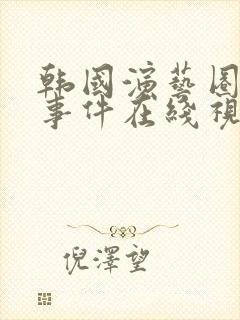 韩國演藝圈
事件在綫視
倪澤望